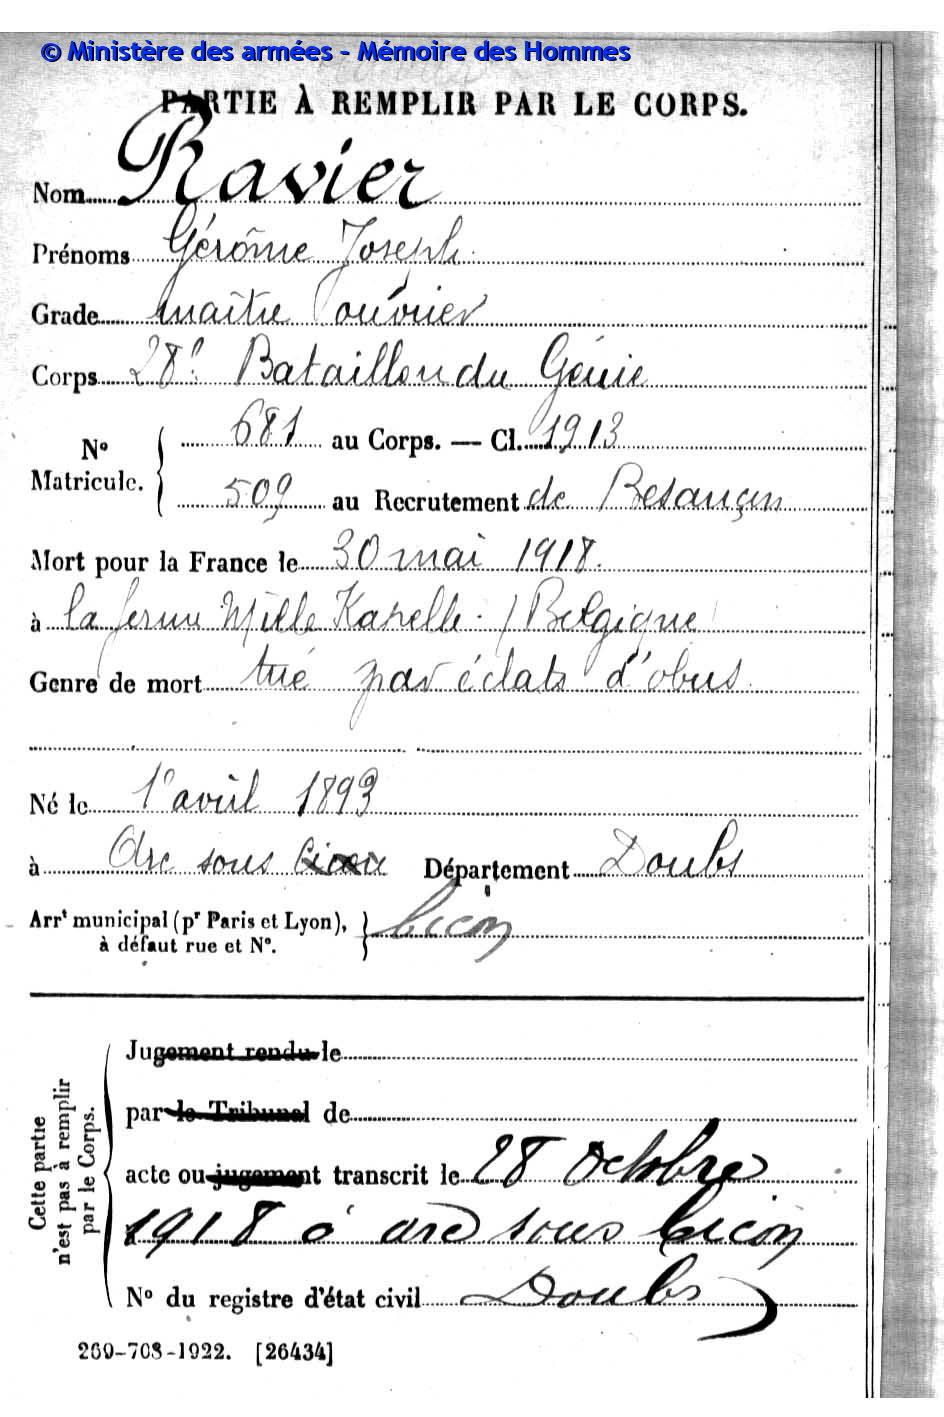 © Ministère des armées - Mémoire des Hommes
PARTIE À REMPLIR PAR LE CORPS.
Nom Ravier
Prénoms Gérôme Joseph
Grade maître ouvrier
Corps 28e Bataillon du Génie
No Matricule. 681 au Corps. — Cl. 1913
509 au Recrutement de Besançon
Mort pour la France le 30 mai 1918.
à la ferme Mille Kapelle. (Belgique)
Genre de mort tué par éclats d'obus
Né le 1er avril 1893
à Arc sous Département Doubs
Arrt municipal (pr Paris et Lyon), à défaut rue et No. Cicon
Cette partie n'est pas à remplir par le Corps.
Jugement rendu le
par le Tribunal de
acte ou jugement transcrit le 28 octobre
1918 à arc sous Cicon
No du registre d'état civil Doubs
260-708-1922. [26434]